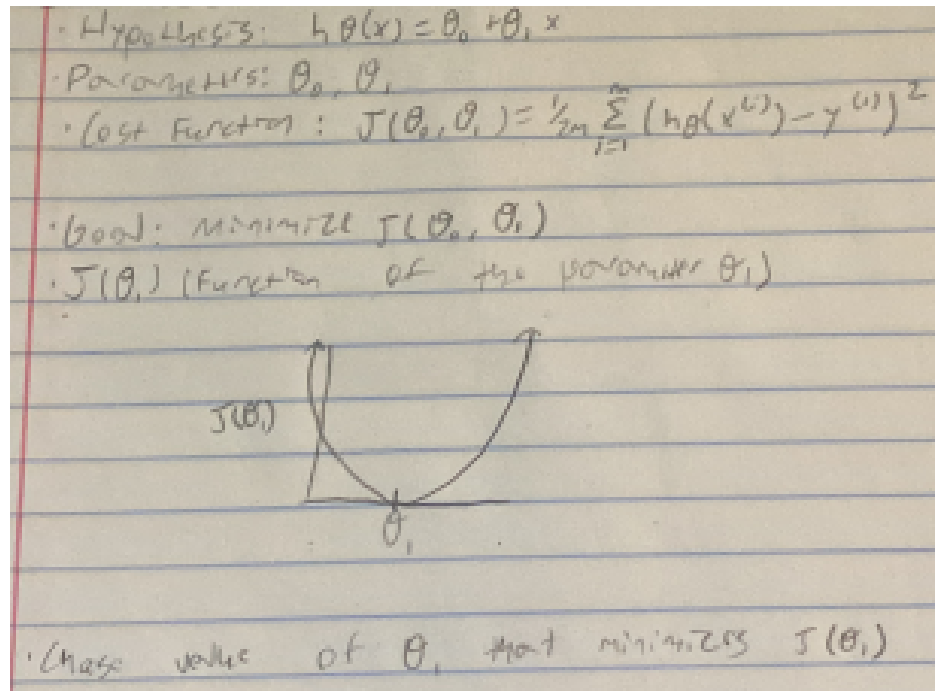 · Hypothesis: hθ(x) = θ₀ + θ₁ x
· Parameters: θ₀, θ₁
· Cost Function: J(θ₀, θ₁) = 1/2m Σ_{i=1}^{m} (hθ(x⁽ⁱ⁾) − y⁽ⁱ⁾)²
· Goal: Minimize J(θ₀, θ₁)
· J(θ₁) (Function of the parameter θ₁)
J(θ₁)
θ₁
· Chose value of θ₁ that minimizes J(θ₁)